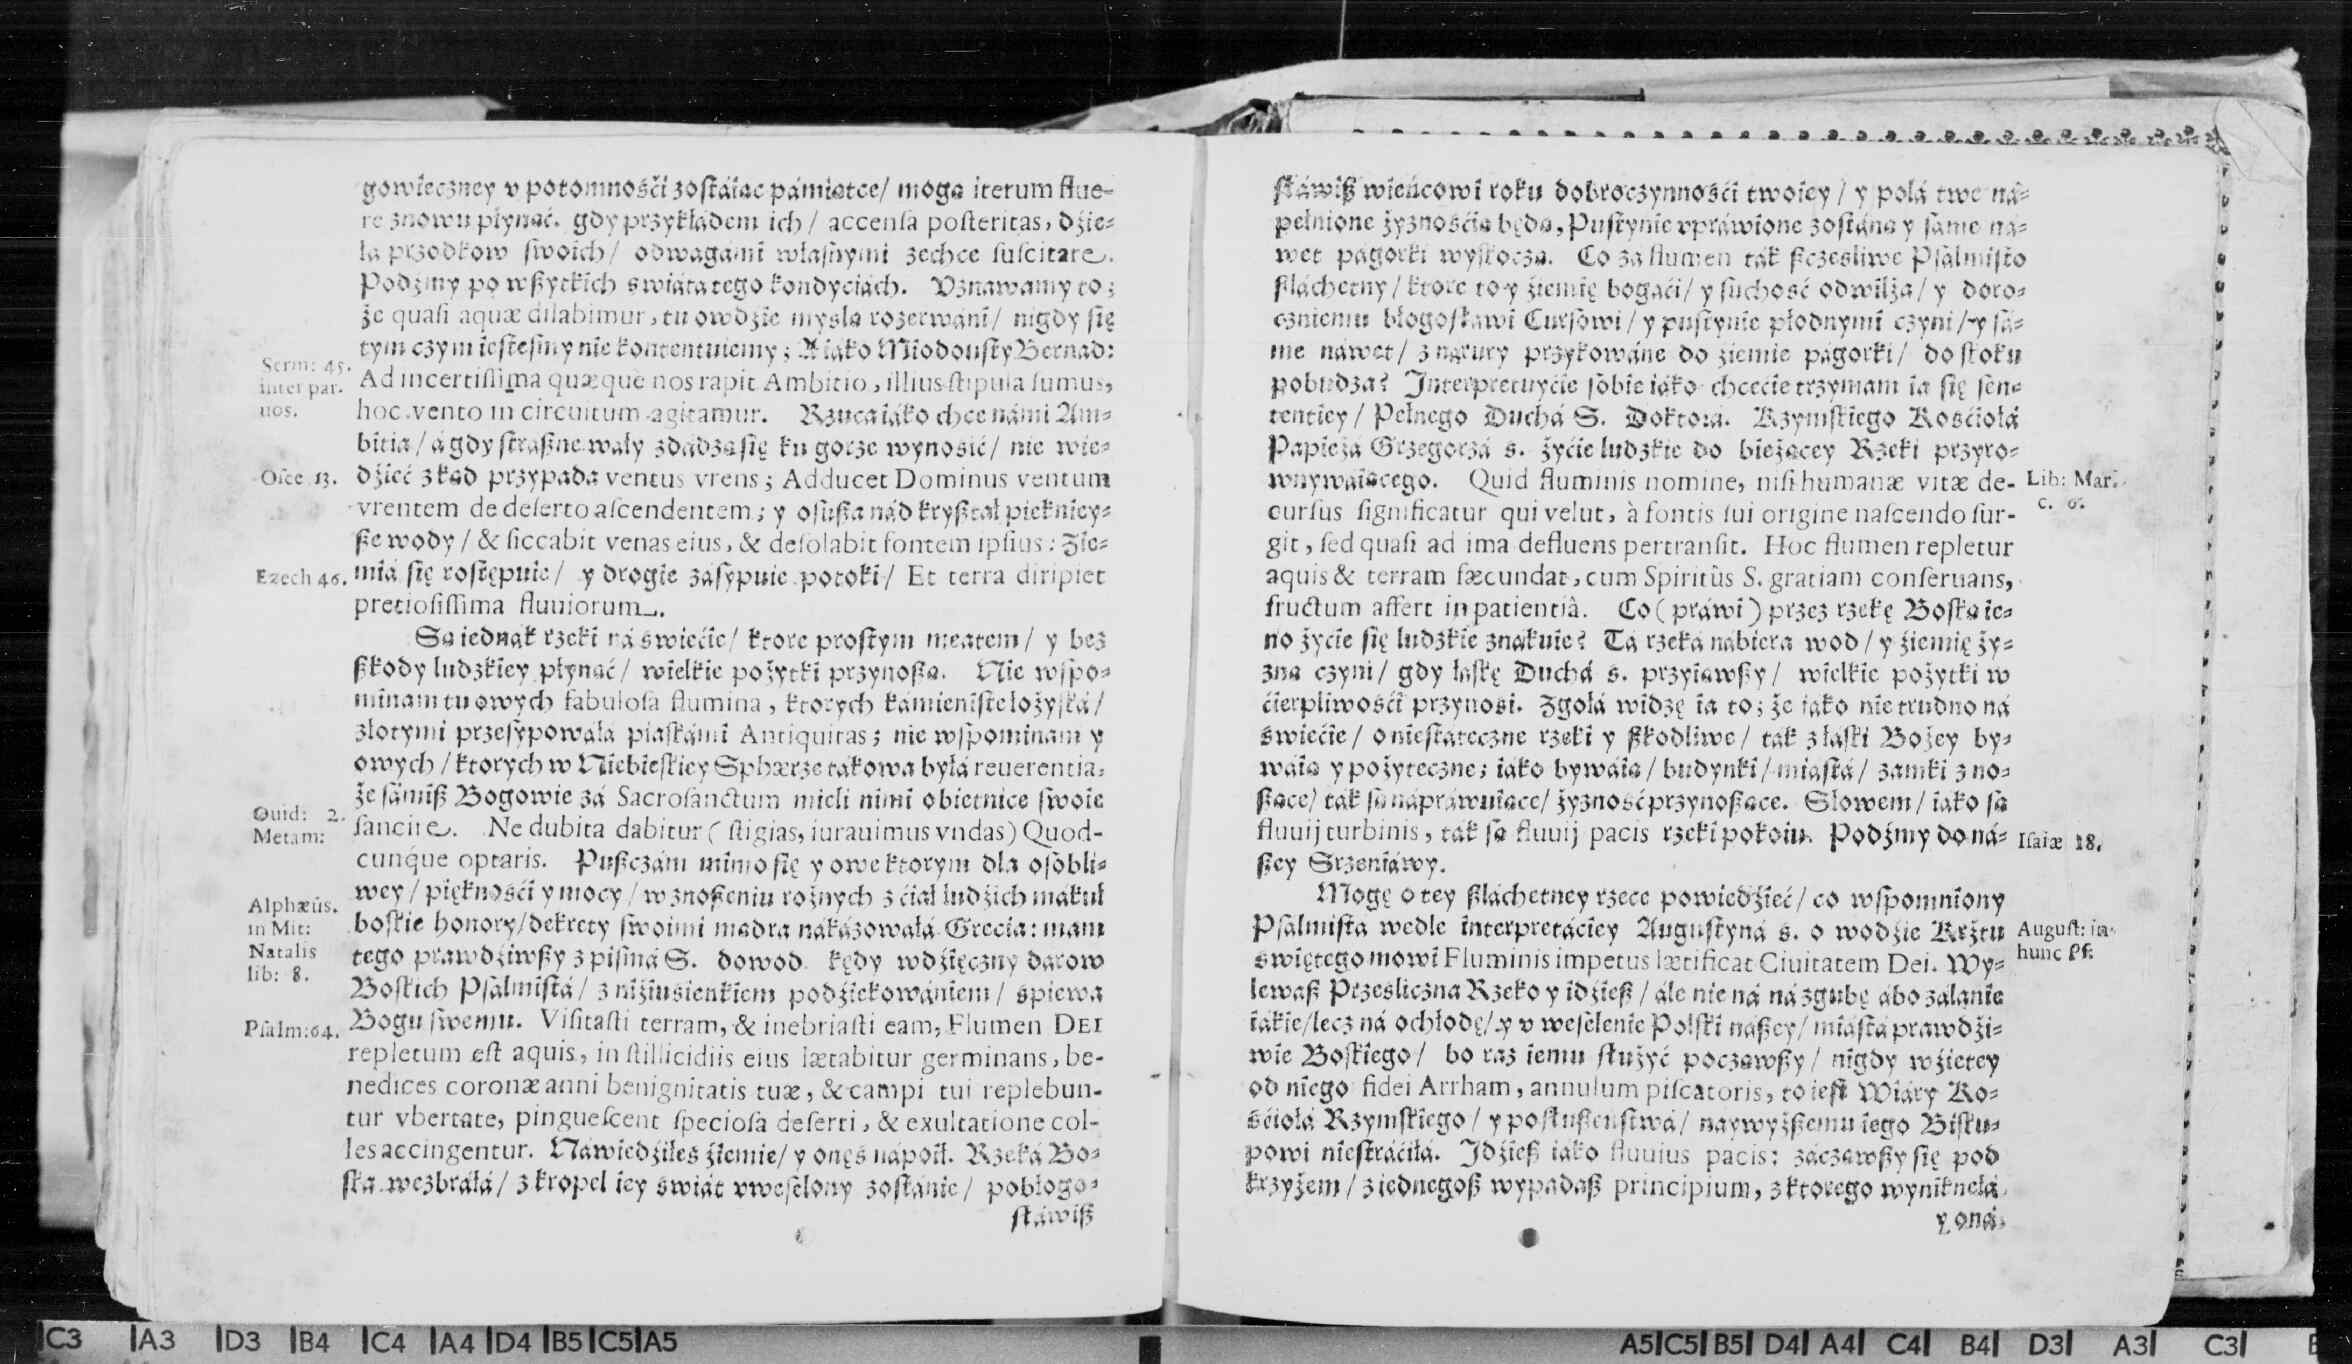 gowieczney v potomnośći zostáiac pámiątce/ mogą iterum flue-
re znowu płynąć. gdy przykładem ich/ accensa posteritas, dźie-
łá przodkow swoich/ odwagámi własnymi zechce suscitare.
Podźmy po wßytkich świátá tego kondyciách. Vznawamy to;
że quasi aquæ dilabimur, tu owdźie myslą rozerwáni/ nigdy się
tym czym iestesmy nie kontentuiemy; A iáko Miodousty Bernad:
Serm: 45.
inter par.
uos.
Ad incertissima quæque nos rapit Ambitio, illius stipula sumus,
hoc vento in circuitum agitamur. Rzuca iáko chce námi Am-
bitia/ á gdy straßne wały zdádzą się ku gorze wynosić/ nie wie-
Osee 13.
dźieć zkąd przypada ventus vrens; Adducet Dominus ventum
vrentem de deserto ascendentem; y osußa nád kryßtał pieknìey-
ße wody/ & siccabit venas eius, & desolabit fontem ipsius: Zie-
Ezech 46.
mia się rostępuie/ y drogie zásypuie potoki/ Et terra diripiet
pretiosissima fluuiorum.
Są iednák rzeki ná świećie/ ktore prostym meatem/ y bez
ßkody ludzkiey płynąć/ wielkie pożytki przynoßą. Nie wspo-
minam tu owych fabulosa flumina, ktorych kámieniste łożyská/
złotymi przesypowałá piaskámi Antiquitas; nie wspominam y
owych/ ktorych w Niebieskiey Sphærze tákowa byłá reuerentia,
że sámiß Bogowie zá Sacrosanctum mieli nimi obietnice swoie
Ouid: 2.
Metam:
sancire. Ne dubita dabitur (stigias, iurauimus vndas) Quod-
cunque optaris. Pußczám mimo się y owe ktorym dla osobli-
wey/ pięknośći y mocy/ w znoßeniu rożnych z ćiał ludźich makuł
Alphæûs.
in Mit:
Natalis
lib: 8.
boskie honory/ dekrety swoimi mądra nákázowáłá Grecia: mam
tego prawdźiwßy z pismá S. dowod. kędy wdźięczny dárow
Boskich Psálmistá/ z niżiusienkiem podźiekowániem/ spiewa
Psalm: 64.
Bogu swemu. Visitasti terram, & inebriasti eam, Flumen DEI
repletum est aquis, in stillicidiis eius lætabitur germinans, be-
nedices coronæ anni benignitatis tuæ, & campi tui replebun-
tur vbertate, pinguescent speciosa deserti, & exultatione col-
les accingentur. Náwiedźiłeś źiemie/ y onęś nápoił. Rzeká Bo-
ska wezbráłá/ z kropel iey świát vweselony zostánie/ pobłogo-
sławiß
sławiß wieńcowi roku dobroczynnośći twoiey/ y polá twe ná-
pełnione żyznośćią będą, Pustynie vpráwione zostáną y sáme ná-
wet págorki wyskoczą. Co za flumen ták ßczesliwe Psálmisto
ßláchetny/ ktore to y źiemię bogáći/ y suchość odwilża/ y doro-
cznemu błogosławi Cursowi/ y pustynie płodnymi czyni/ y sá-
me náwet/ z nátury przykowáne do źiemie págorki/ do skoku
pobudza? Interpretuyćie sobie iáko chcećie trzymam ia się sen-
tentiey/ Pełnego Duchá S. Doktora. Rzymskiego Kośćiołá
Papieżá Grzegorzá s. żyćie ludzkie do bieżącey Rzeki przyro-
wnywaiącego. Quid fluminis nomine, nisi humanæ vitæ de-
Lib: Mar.
c. 6.
cursus significatur qui velut, à fontis sui origine nascendo sur-
git, sed quasi ad ima defluens pertransit. Hoc flumen repletur
aquis & terram fæcundat, cum Spiritûs S. gratiam conseruans,
fructum affert in patientiâ. Co (práwi) przez rzekę Boską ie-
no żyćie się ludzkie znákuie? Tá rzeká nábiera wod/ y źiemię ży-
zną czyni/ gdy łáskę Duchá s. przyiawßy/ wielkie pożytki w
ćierpliwośći przynosi. Zgołá widzę ia to; że iáko nie trudno ná
świećie/ o niestáteczne rzeki y ßkodliwe/ tak z łáski Bożey by-
wáią y pożyteczne; iáko bywáią/ budynki/ miástá/ zamki zno-
ßące/ ták są nápráwuiące/ żyzność przynoßące. Słowem/ iáko są
fluuij turbinis, ták są fluuij pacis rzeki pokoiu. Podźmy do ná-
Isaiæ 18.
ßey Srzeniáwy.
Mogę o tey ßláchetney rzece powiedźieć/ co wspomniony
Psálmistá wedle interpretáciey Augustyná s. o wodźie Krztu
August: in
hunc Ps:
świętego mowi Fluminis impetus lætificat Ciuitatem Dei. Wy-
lewaß Prześliczna Rzeko y idźieß/ ále nie ná ná zgubę ábo zalánie
iákie/ lecz ná ochłodę/ y v weselenie Polski náßey/ miástá prawdźi-
wie Boskiego/ bo raz iemu służyć począwßy/ nigdy wźiętey
od niego fidei Arrham, annulum piscatoris, to iest Wiáry Ko-
śćiołá Rzymskiego/ y posłußenstwá/ naywyżßemu iego Bisku-
powi niestráćiłá. Idźieß iáko fluuius pacis: záczawßy się pod
krzyżem/ z iednegoß wypadaß principium, z ktorego wyniknełá
y oná